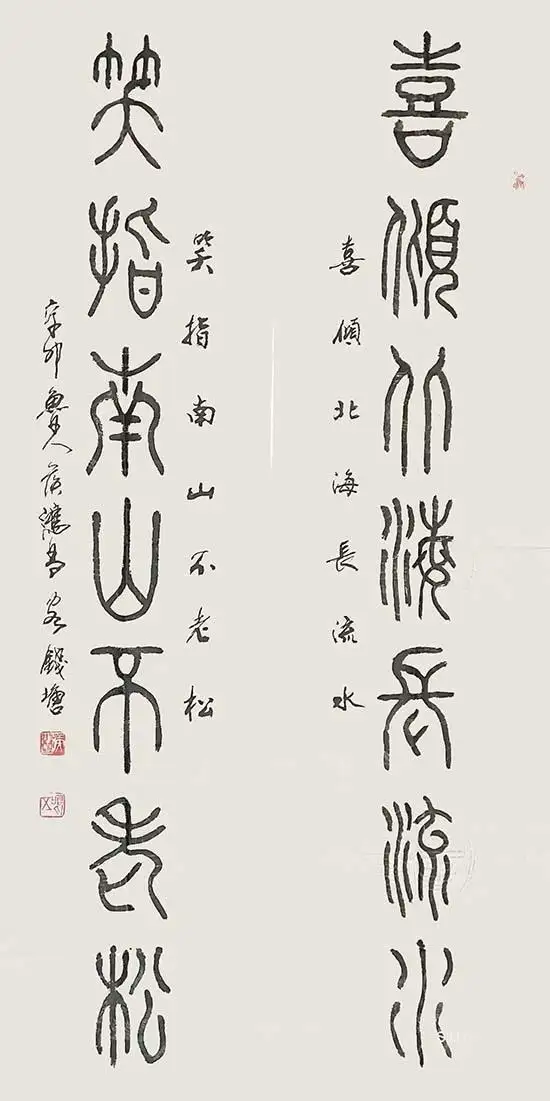 喜傾北海長流水
喜傾北海長流水
笑指南山不老松
笑指南山不老松
辛卯魯人客錢塘